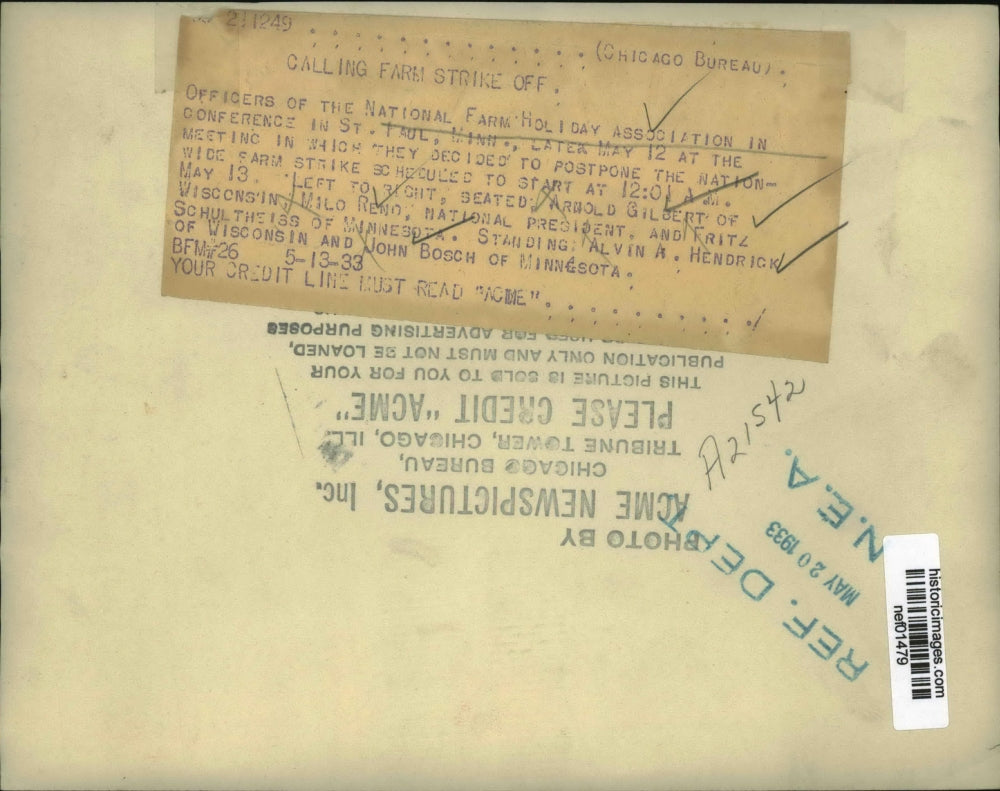 211249
. . . . . . . . . . . . . (CHICAGO BUREAU).
CALLING FARM STRIKE OFF.
OFFICERS OF THE NATIONAL FARM HOLIDAY ASSOCIATION IN
CONFERENCE IN ST. PAUL, MINN., LATEK MAY 12 AT THE
MEETING IN WHICH THEY DECIDED TO POSTPONE THE NATION-
WIDE FARM STRIKE SCHEDULED TO START AT 12:01 A.M.
MAY 13. LEFT TO RIGHT, SEATED: ARNOLD GILBERT OF
WISCONSIN, MILO RENO, NATIONAL PRESIDENT, AND FRITZ
SCHULTHEISS OF MINNESOTA. STANDING: ALVIN A. HENDRICK
OF WISCONSIN AND JOHN BOSCH OF MINNESOTA.
BFM#26 5-13-33
YOUR CREDIT LINE MUST READ "ACME". . . . . . . . . . /
PHOTO BY
ACME NEWSPICTURES, Inc.
CHICAGO BUREAU,
TRIBUNE TOWER, CHICAGO, ILL.
PLEASE CREDIT "ACME"
THIS PICTURE IS SOLD TO YOU FOR YOUR
PUBLICATION ONLY AND MUST NOT BE LOANED,
USED FOR ADVERTISING PURPOSES
A21542
REF. DEPT.
MAY 20 1933
N.E.A.
historicimages.com
nef01479